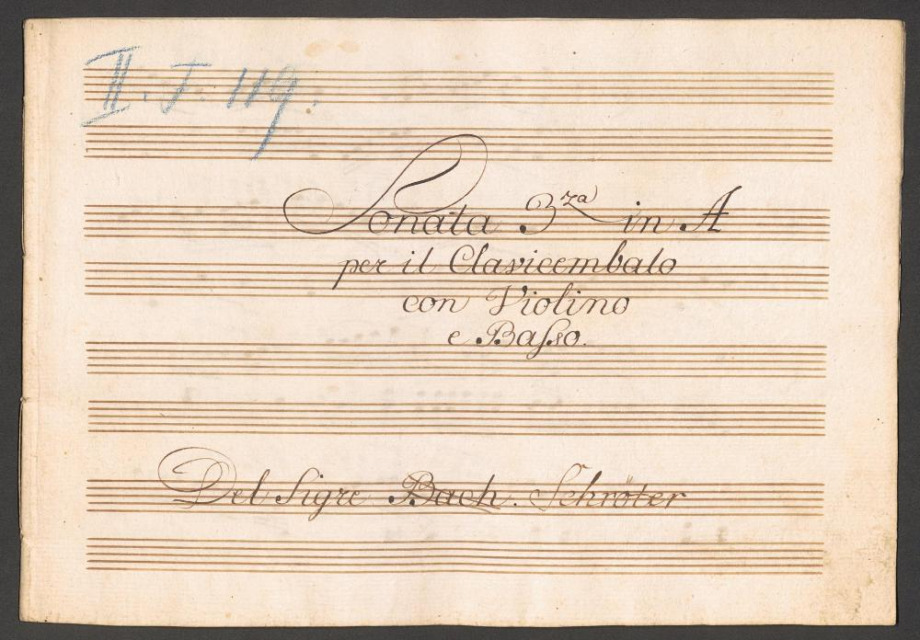 II. J. 119.
Sonata 3za in A
per il Clavicembalo
con Violino
e Basso.
Del Sigre Bach. Schröter